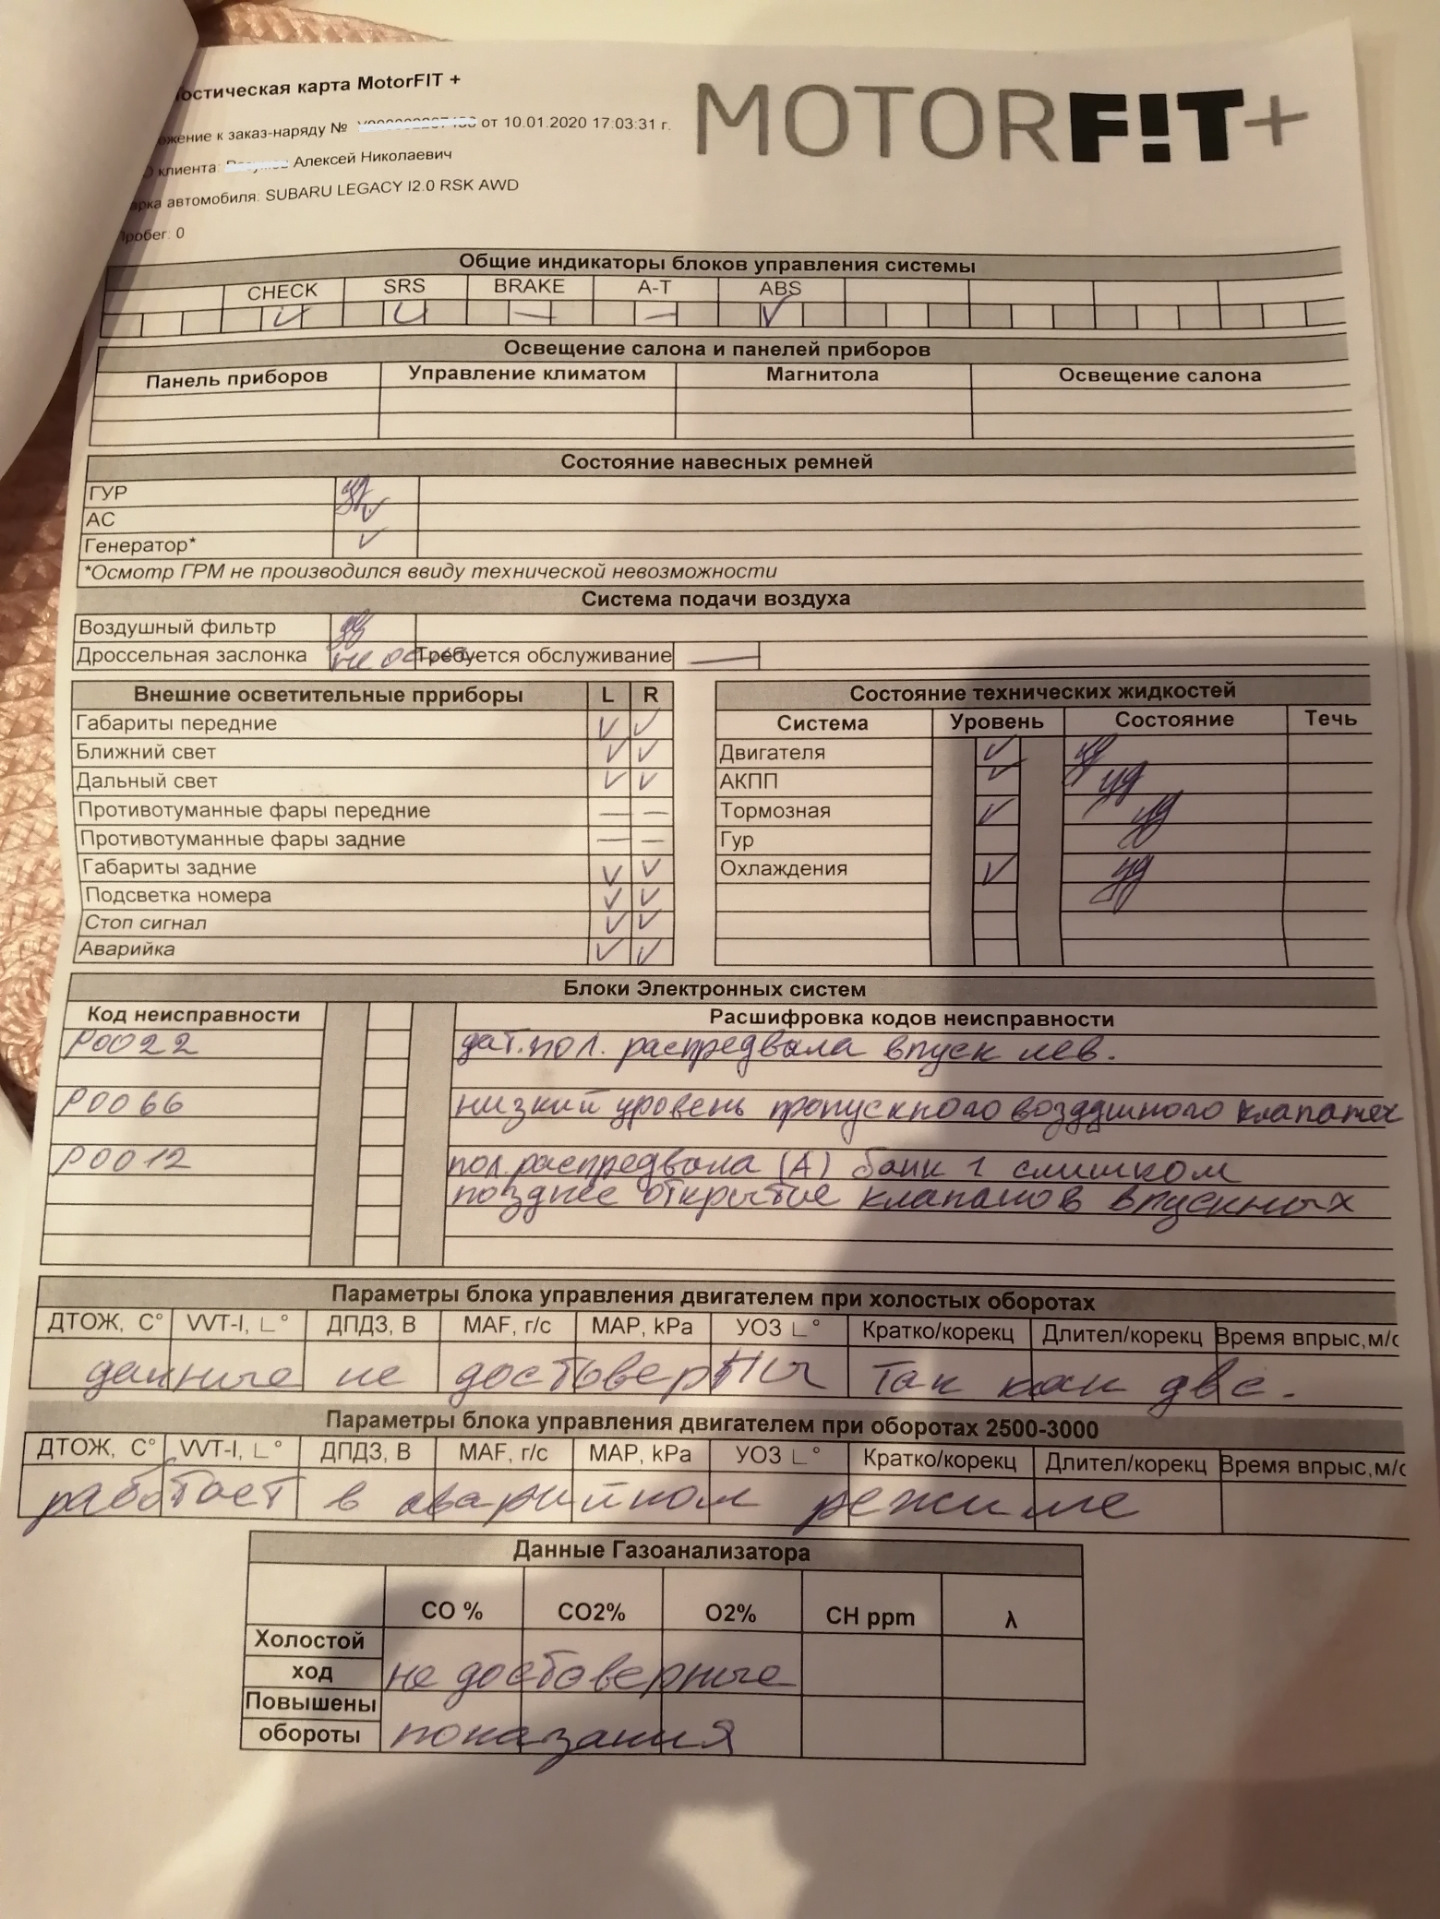 остическая карта MotorFIT +
MOTORF!T+
жение к заказ-наряду № от 10.01.2020 17:03:31 г.
клиента: Алексей Николаевич
рка автомобиля: SUBARU LEGACY I2.0 RSK AWD
робег: 0
Общие индикаторы блоков управления системы
CHECK SRS BRAKE A-T ABS
✓ ✓ — — ✓
Освещение салона и панелей приборов
Панель приборов Управление климатом Магнитола Освещение салона
Состояние навесных ремней
ГУР уд
АС ✓
Генератор* ✓
*Осмотр ГРМ не производился ввиду технической невозможности
Система подачи воздуха
Воздушный фильтр уд
Дроссельная заслонка не Требуется обслуживание —
Внешние осветительные прриборы L R
Габариты передние ✓ ✓
Ближний свет ✓ ✓
Дальный свет ✓ ✓
Противотуманные фары передние — —
Противотуманные фары задние — —
Габариты задние ✓ ✓
Подсветка номера ✓ ✓
Стоп сигнал ✓ ✓
Аварийка ✓ ✓
Состояние технических жидкостей
Система Уровень Состояние Течь
Двигателя ✓ уд
АКПП ✓ уд
Тормозная ✓ уд
Гур
Охлаждения ✓ уд
Блоки Электронных систем
Код неисправности Расшифровка кодов неисправности
P0022 дат.пол. распредвала впуск лев.
P0066 низкий уровень пропускного воздушного
P0012 пол.распредвала (А) банк 1 слишком
позднее открытие клапанов впускных
Параметры блока управления двигателем при холостых оборотах
ДТОЖ, С° VVT-I, ∟° ДПДЗ, В MAF, г/с MAP, kPa УОЗ ∟° Кратко/корекц Длител/корекц Время впрыс,м/с
данные не достоверны так как двс.
Параметры блока управления двигателем при оборотах 2500-3000
ДТОЖ, С° VVT-I, ∟° ДПДЗ, В MAF, г/с MAP, kPa УОЗ ∟° Кратко/корекц Длител/корекц Время впрыс,м/с
работает в аварийном режиме
Данные Газоанализатора
CO % CO2% O2% CH ppm λ
Холостой
ход не достоверные
Повышены
обороты показания